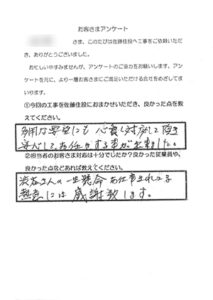 お客さまアンケート
さま、このたびは佐藤住設へ工事をご依頼いただ
き、ありがとうございました。
お忙しい中すみませんが、アンケートのご協力をお願いします。アンケ
ートを元に、より一層お客さまにご満足いただける会社をめざしてま
いります。
①今回の工事を佐藤住設におまかせいただき、良かった点を教
えてください。
心良く対応して頂き
安心してお任せする事が出来ました。
②担当者のお客さま対応は十分でしたか?良かった従業員や、
良かった点などあれば教えてください。
さんの一生懸命お仕事される
熱意には感謝致します。